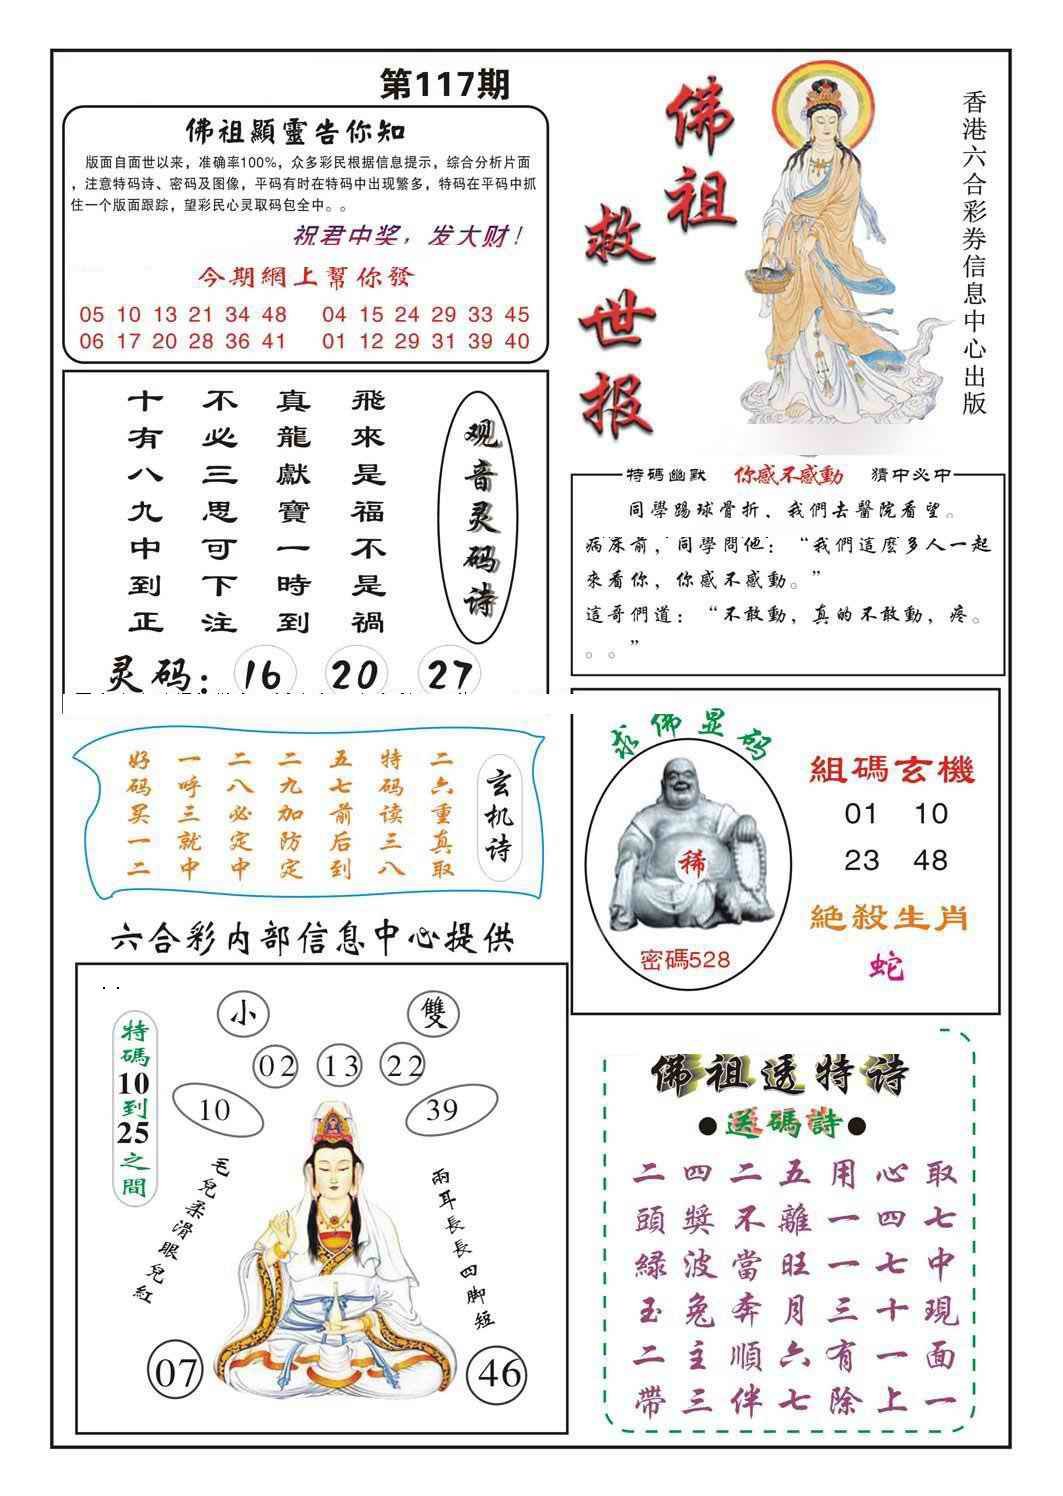 第117期
佛祖顯靈告你知
版面自面世以来，准确率100%，众多彩民根据信息提示，综合分析片面
，注意特码诗、密码及图像，平码有时在特码中出现繁多，特码在平码中抓
住一个版面跟踪，望彩民心灵取码包全中。。
祝君中奖，发大财！
今期網上幫你發
05 10 13 21 34 48 04 15 24 29 33 45
06 17 20 28 36 41 01 12 29 31 39 40
佛祖
救世报
香港六合彩券信息中心出版
观音灵码诗
飛來是福不是禍
真龍獻寶一時到
不必三思可下注
十有八九中到正
灵码：16 20 27
特碼幽默 你感不感動 猜中必中
同學踢球骨折，我們去醫院看望。
病床前，同學問他：“我們這麼多人一起
來看你，你感不感動。”
這哥們道：“不敢動，真的不敢動，疼。
。。”
玄机诗
二六重真取
特码读三八
五七前后到
二九加防定
二八必定中
一呼三就中
好码买一二
求佛显码
稀
密碼528
組碼玄機
01 10
23 48
絕殺生肖
蛇
六合彩内部信息中心提供
特碼10到25之間
小 雙
02 13 22
10 39
毛兒柔滑眼兒紅
兩耳長長四脚短
07 46
佛祖透特诗
●送碼詩●
二四二五用心取
頭獎不離一四七
緑波當旺一七中
玉兔奔月三十現
二主順六有一面
帶三伴七除上一